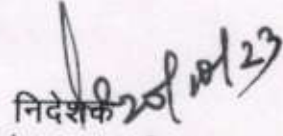 निदेशक 20/10/23